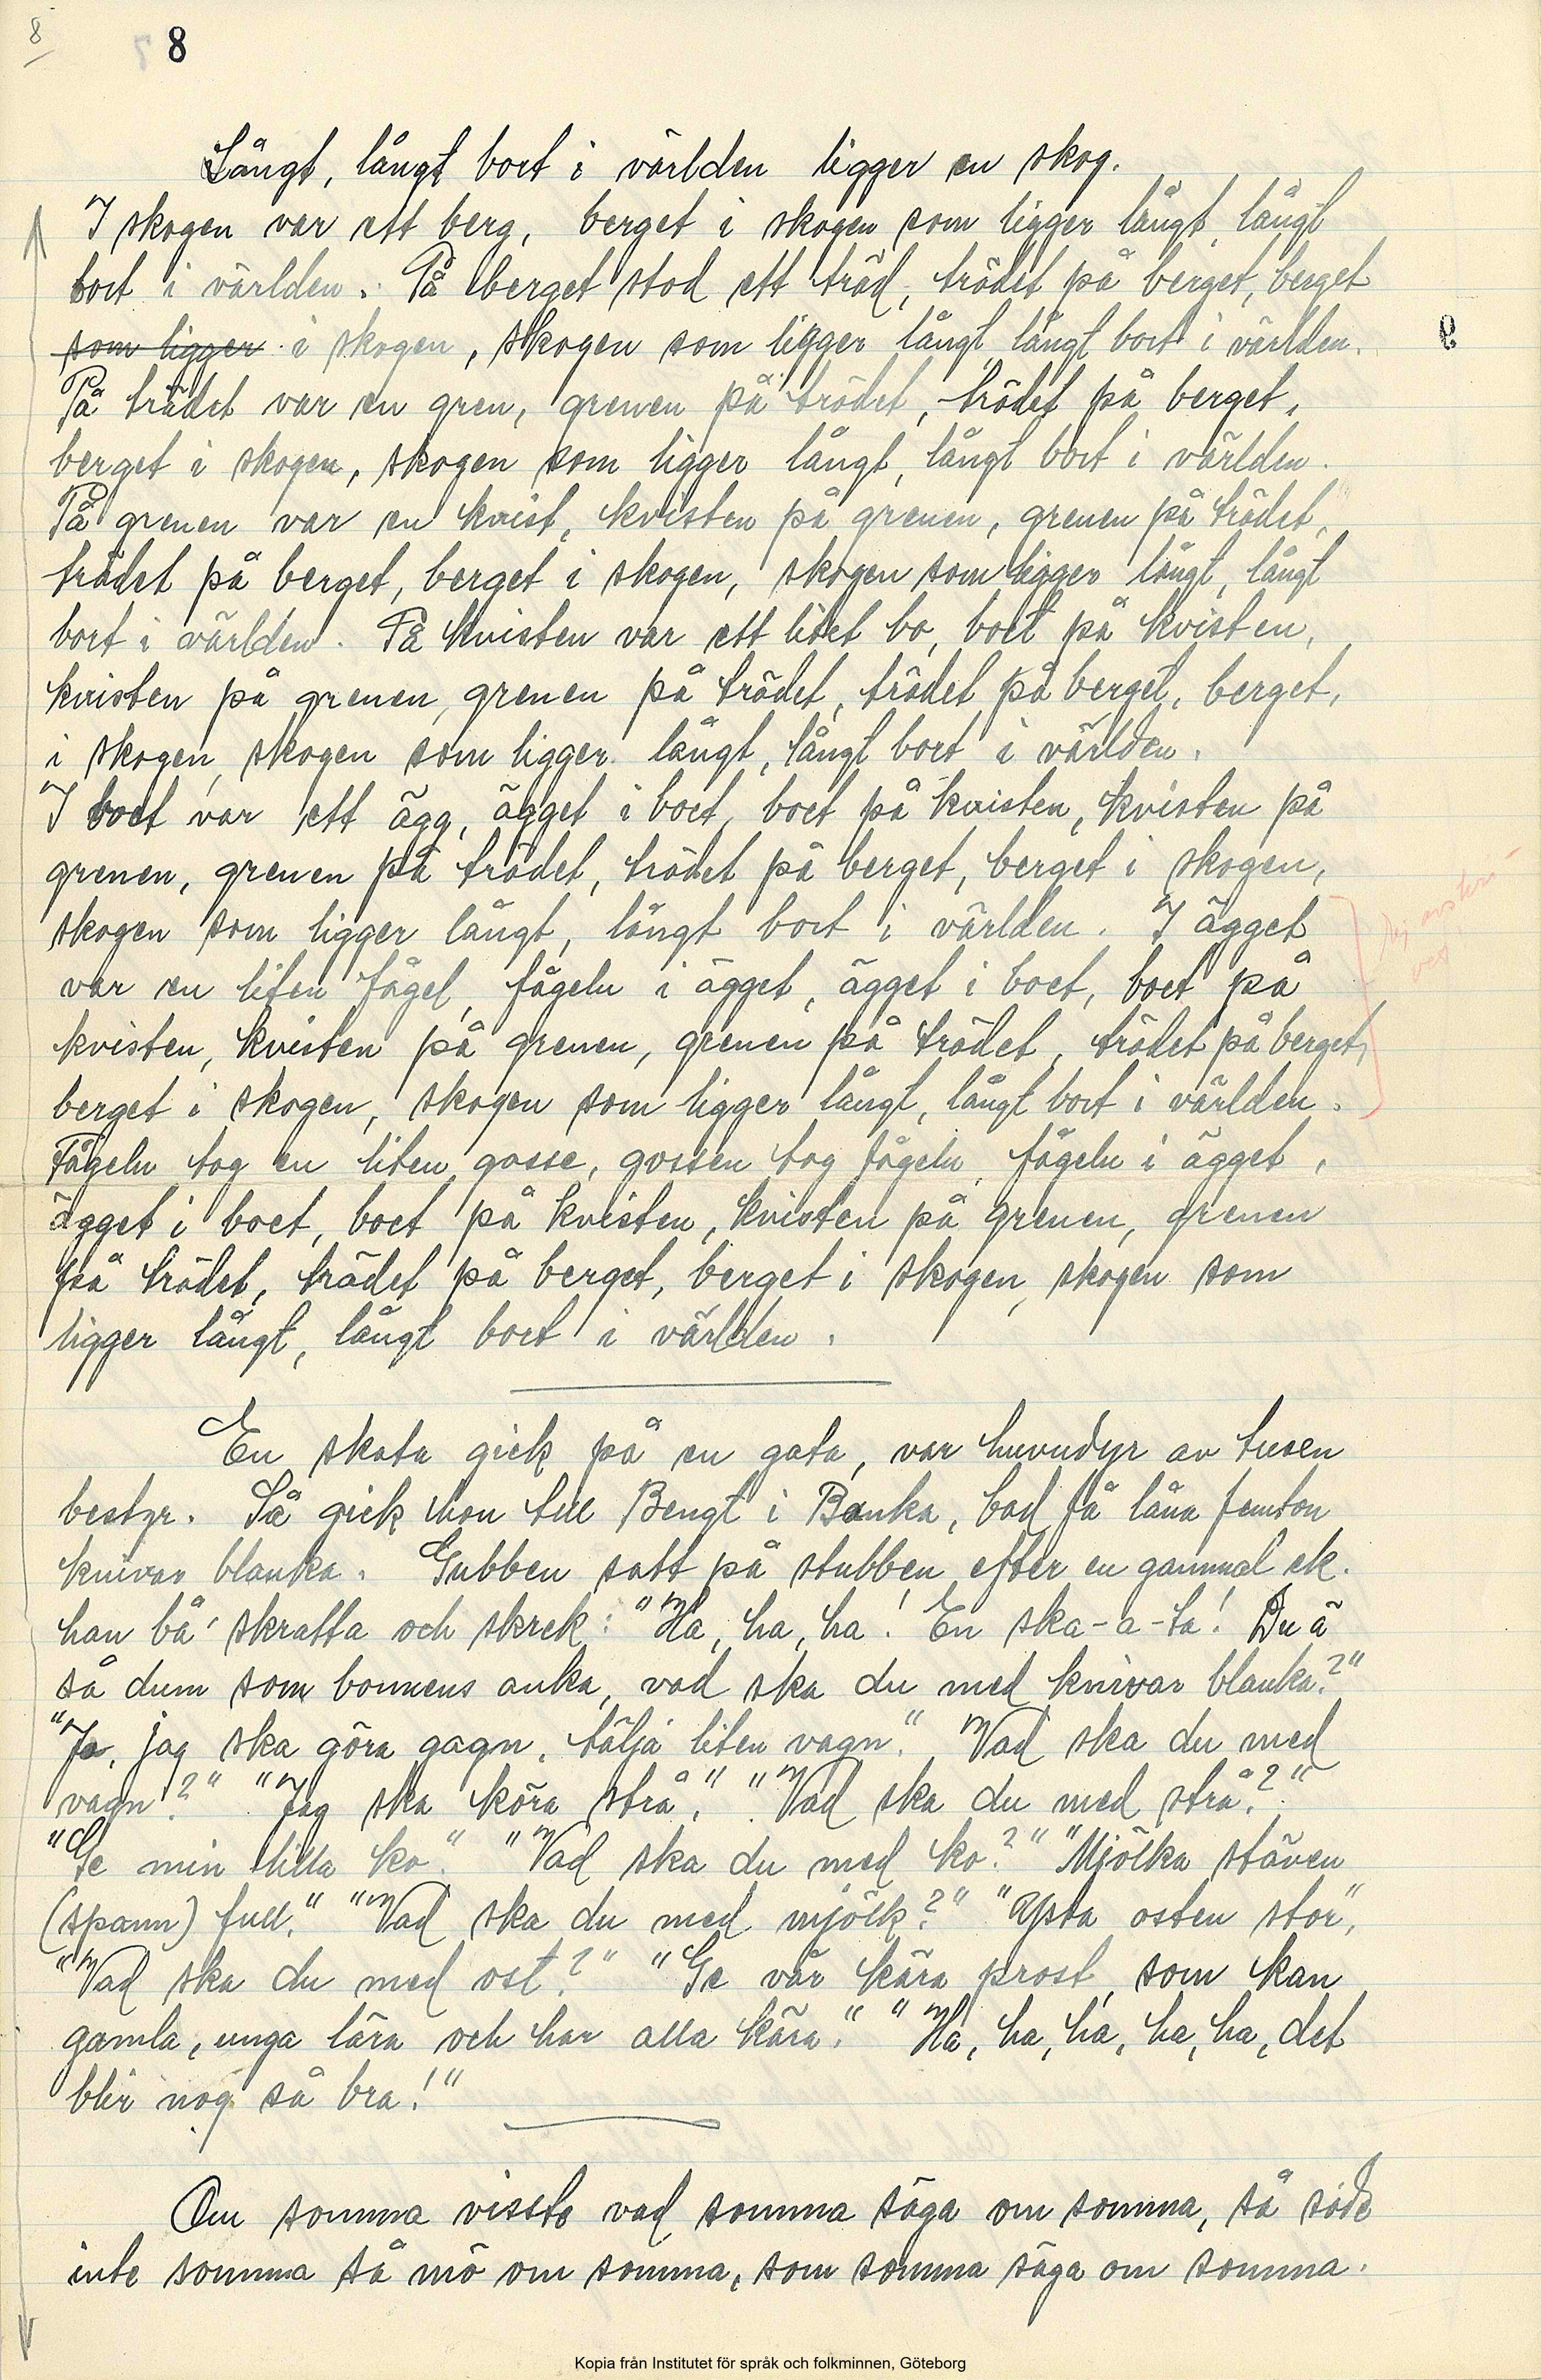 8
8
Långt, långt bort i världen ligger en skog.
I skogen var ett berg, berget i skogen som ligger långt, långt
bort i världen. På berget stod ett träd, trädet på berget, berget
som ligger i skogen, skogen som ligger långt, långt bort i världen.
På trädet var en gren, grenen på trädet, trädet på berget,
berget i skogen, skogen som ligger långt, långt bort i världen.
På grenen var en kvist, kvisten på grenen, grenen på trädet,
trädet på berget, berget i skogen, skogen som ligger långt, långt
bort i världen. På kvisten var ett litet bo, boet på kvisten,
kvisten på grenen, grenen på trädet, trädet på berget, berget,
i skogen, skogen som ligger långt, långt bort i världen.
I boet var ett ägg, ägget i boet, boet på kvisten, kvisten på
grenen, grenen på trädet, trädet på berget, berget i skogen,
skogen som ligger långt, långt bort i världen. I ägget
var en liten fågel, fågeln i ägget, ägget i boet, boet på
kvisten, kvisten på grenen, grenen på trädet, trädet på berget,
berget i skogen, skogen som ligger långt, långt bort i världen.
Fågeln tog en liten gosse, gossen tog fågeln, fågeln i ägget,
ägget i boet, boet på kvisten, kvisten på grenen, grenen
på trädet, trädet på berget, berget i skogen, skogen som
ligger långt, långt bort i världen.
En skata gick på en gata, var huvudyr av tusen
bestyr. Så gick hon till Bengt i Banka, bad få låna femton
knivar blanka. Gubben satt på stubben efter en gammal ek.
han bå' skratta och skrek: "Ha, ha, ha! En ska-a-ta! Du ä
så dum som bonnens anka, vad ska du med knivar blanka?"
"Ja, jag ska göra gagn, tälja liten vagn." Vad ska du med
vagn?" "Jag ska köra strå." "Vad ska du med strå?"
"Ge min lilla ko." "Vad ska du med ko?" "Mjölka stäven
(spann) full." "Vad ska du med mjölk?" "Ysta osten stor",
"Vad ska du med ost?" "Ge vår kära prost, som kan
gamla, unga lära och har alla kära." "Ha, ha, ha, ha, ha, det
blir nog så bra!"
Om somma visste vad somma säga om somma, så sade
inte somma så mö om somma, som somma säga om somma.
Kopia från Institutet för språk och folkminnen, Göteborg